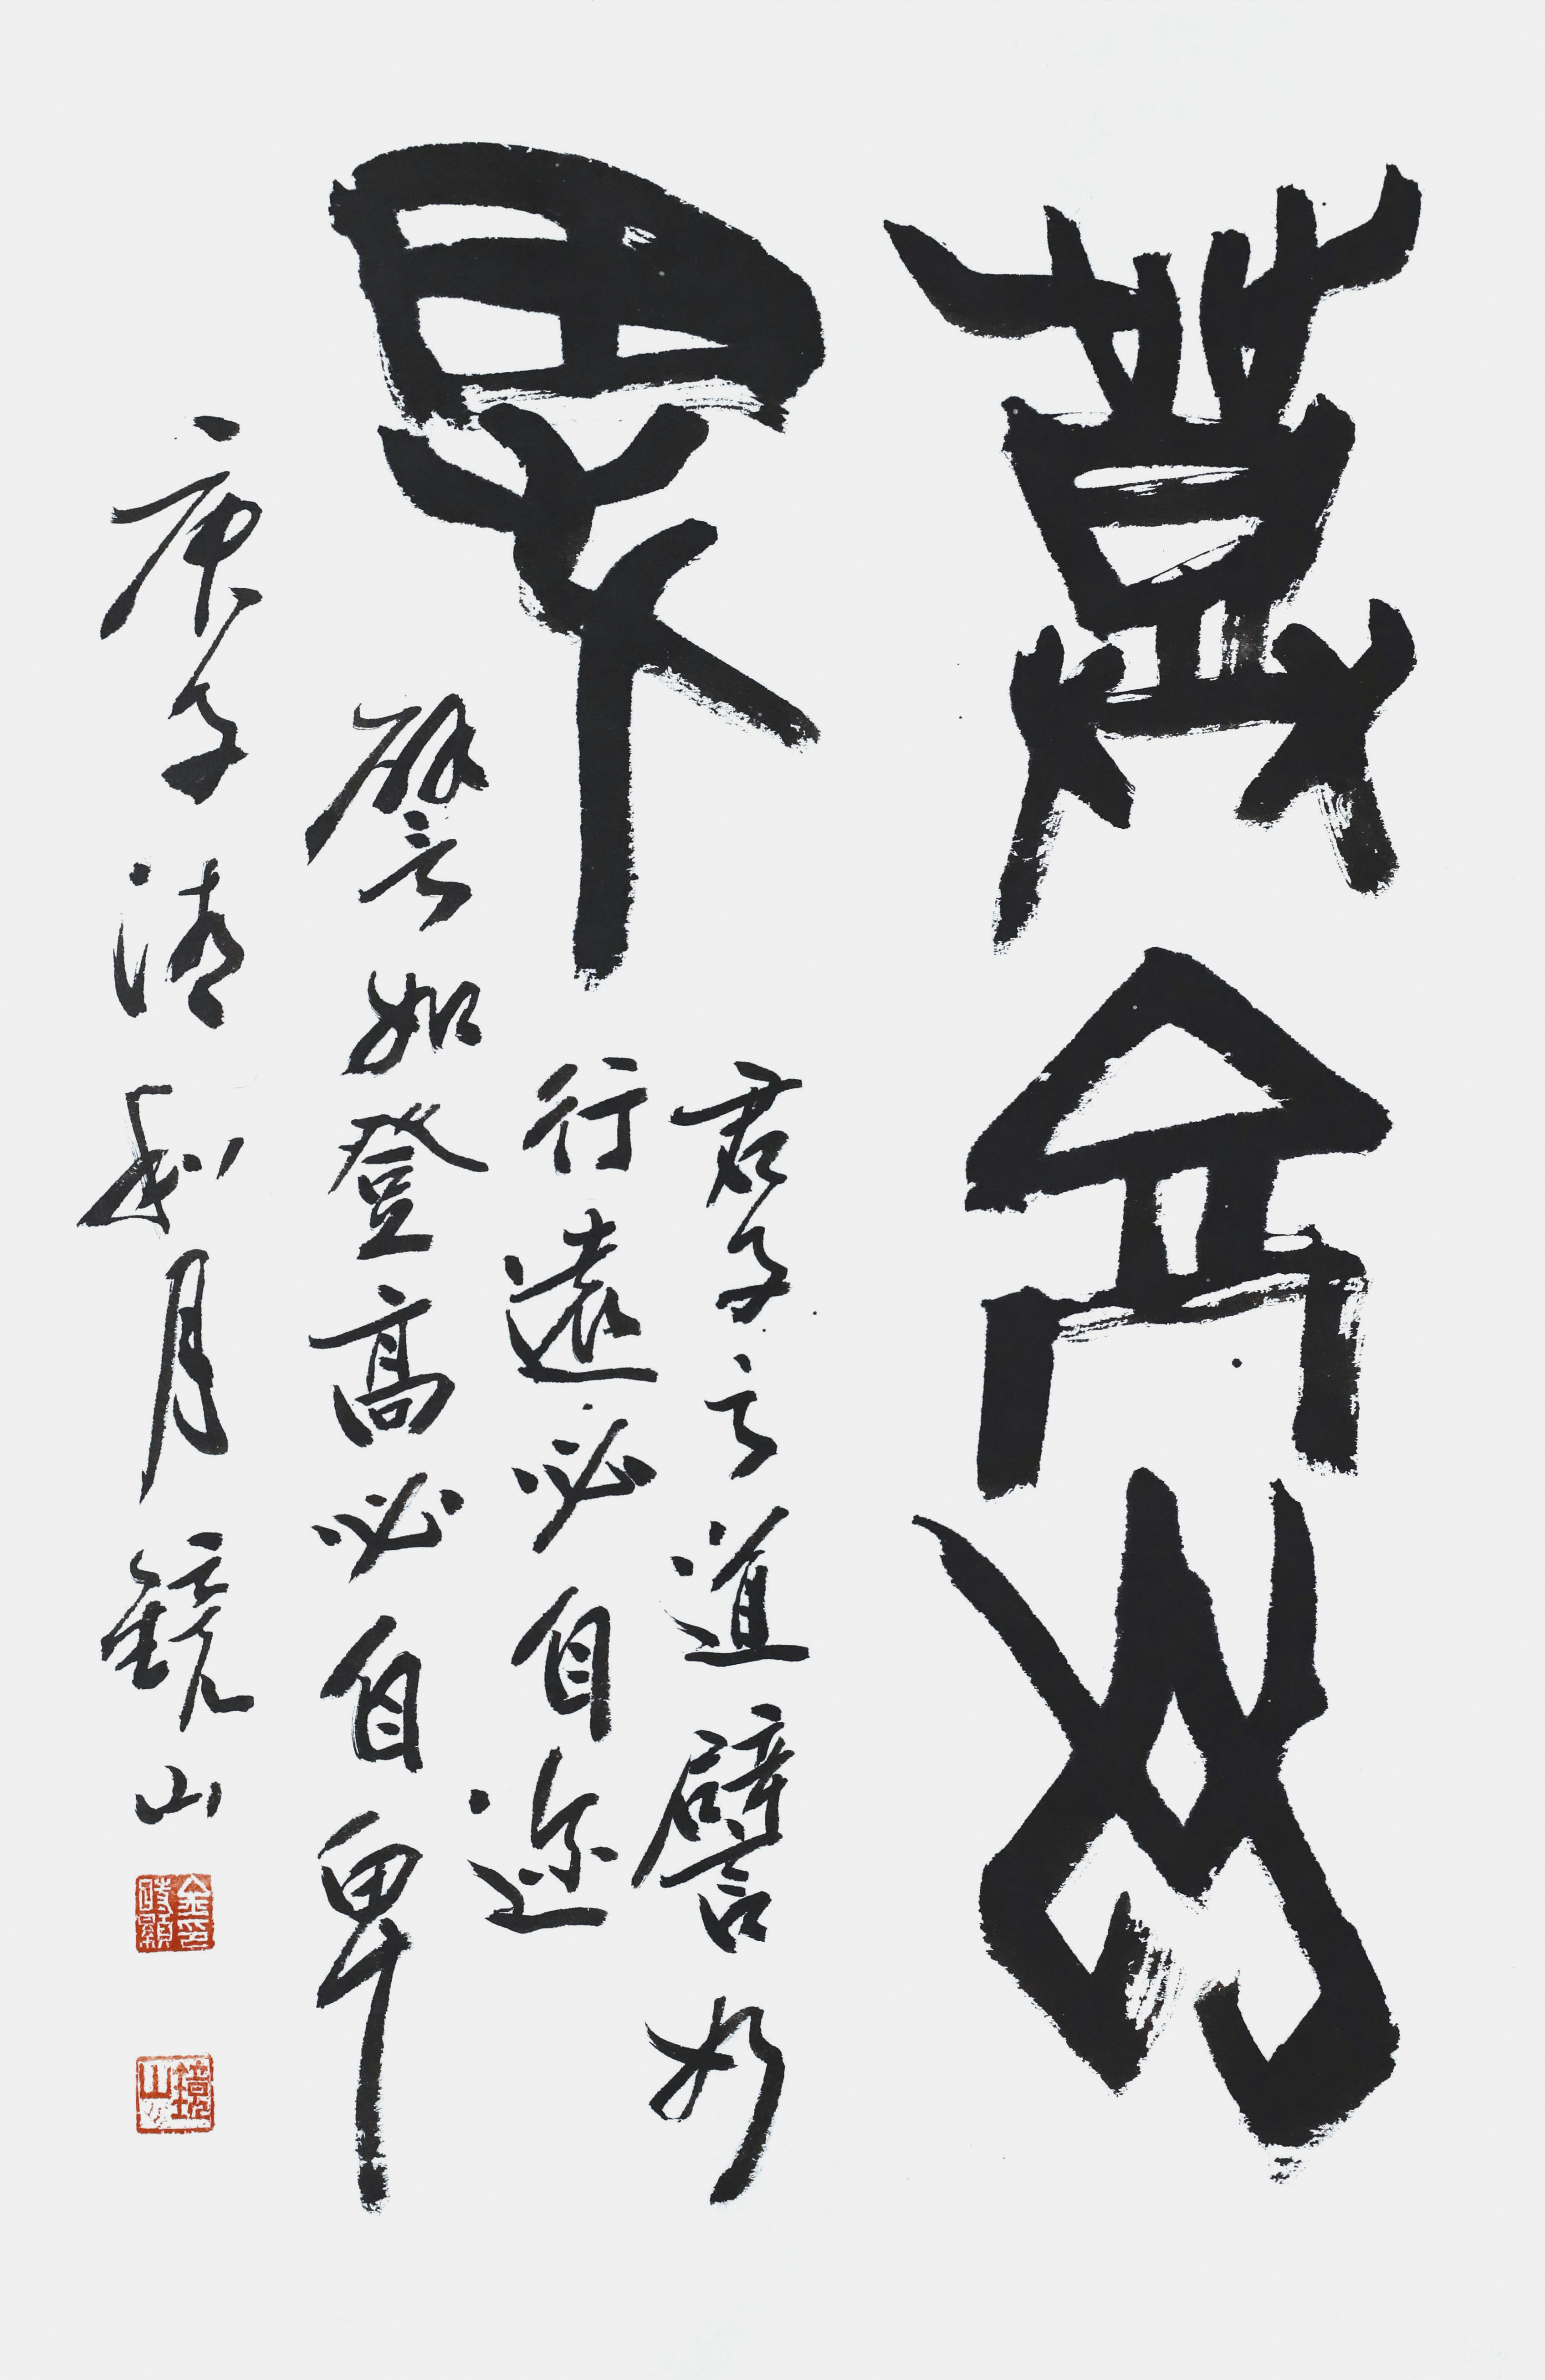 登高自
卑
君子之道譬如
行遠必自迩
譬如登高必自卑
庚子清秋月鏡山
鏡山